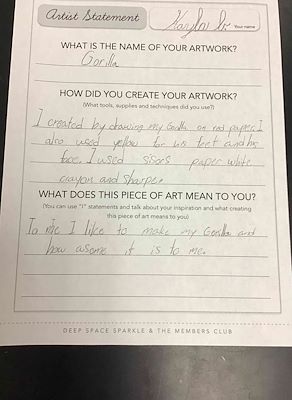 Artist Statement
Your name
WHAT IS THE NAME OF YOUR ARTWORK?
Gorilla
HOW DID YOU CREATE YOUR ARTWORK?
(What tools, supplies and techniques did you use?)
I created by drawing my Gorilla on red paper. I
also used yellow for his feet and his
face. I used sisors paper white
crayon and sharpe.
WHAT DOES THIS PIECE OF ART MEAN TO YOU?
(You can use "I" statements and talk about your inspiration and what creating
this piece of art means to you)
To me I like to make my Gorilla and
how asome it is to me.
DEEP SPACE SPARKLE & THE MEMBERS CLUB